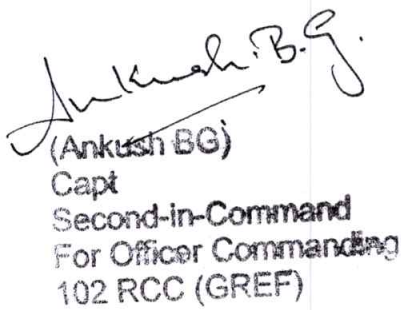 Ankush.B.G.
(Ankush BG)
Capt
Second-in-Command
For Officer Commanding
102 RCC (GREF)